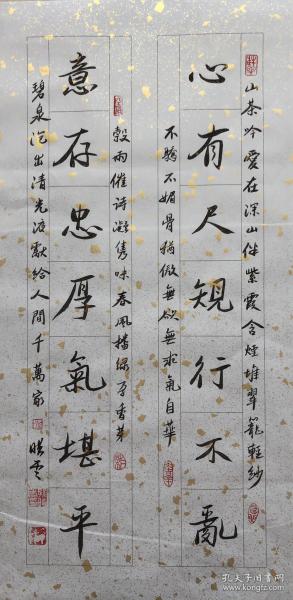 山茶吟 愛在深山伴紫霞含煙堆翠籠輕紗
心有尺規行不亂
不驕不媚骨猶傲無欲無求氣自華
穀雨催詩凝雋味春風播綠孕香芽
意存忠厚氣堪平
碧泉泡出清光液獻給人間千萬家
孔夫子旧书网